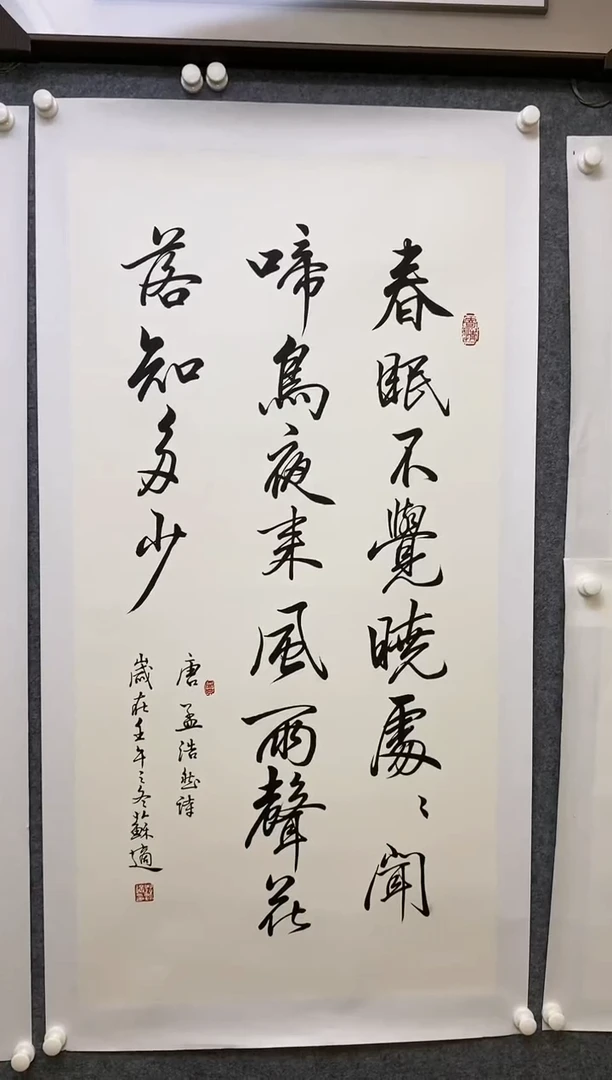 春眠不覺曉處〻聞
啼鳥夜来風雨聲花
落知多少
唐孟浩然詩
歲在壬午〻冬蘇適